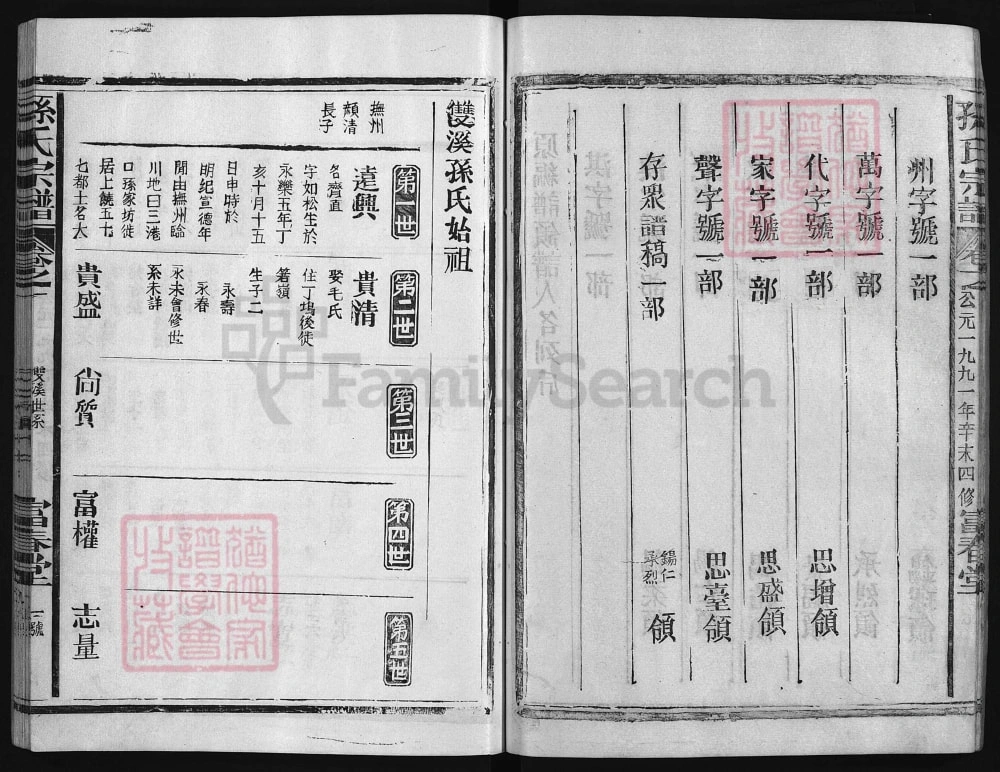 孫氏宗譜 卷之 公元一九九一年辛未四修 富春堂
州字號一部
萬字號一部
代字號一部 思增領
家字號一部 思盛領
聲字號一部 思臺領
存眾譜稿一部 錫仁 承烈 領
雙溪孫氏始祖
第一世
第二世
第三世
第四世
第五世
撫州
頡清
長子
達興
名齊直
字如松生於
永樂五年丁
亥十月十五
日申時於
明紀宣德年
間由撫州臨
川地曰三港
口孫家坊徙
居上饒五十
七都土名大
貴清
娶毛氏
住丁塢後徙
箬嶺
生子二
永壽
永春
永未會修世
系未詳
貴盛
尚質
富權
志量
孫氏宗譜 卷之
雙溪世系
富春堂
號
FamilySearch